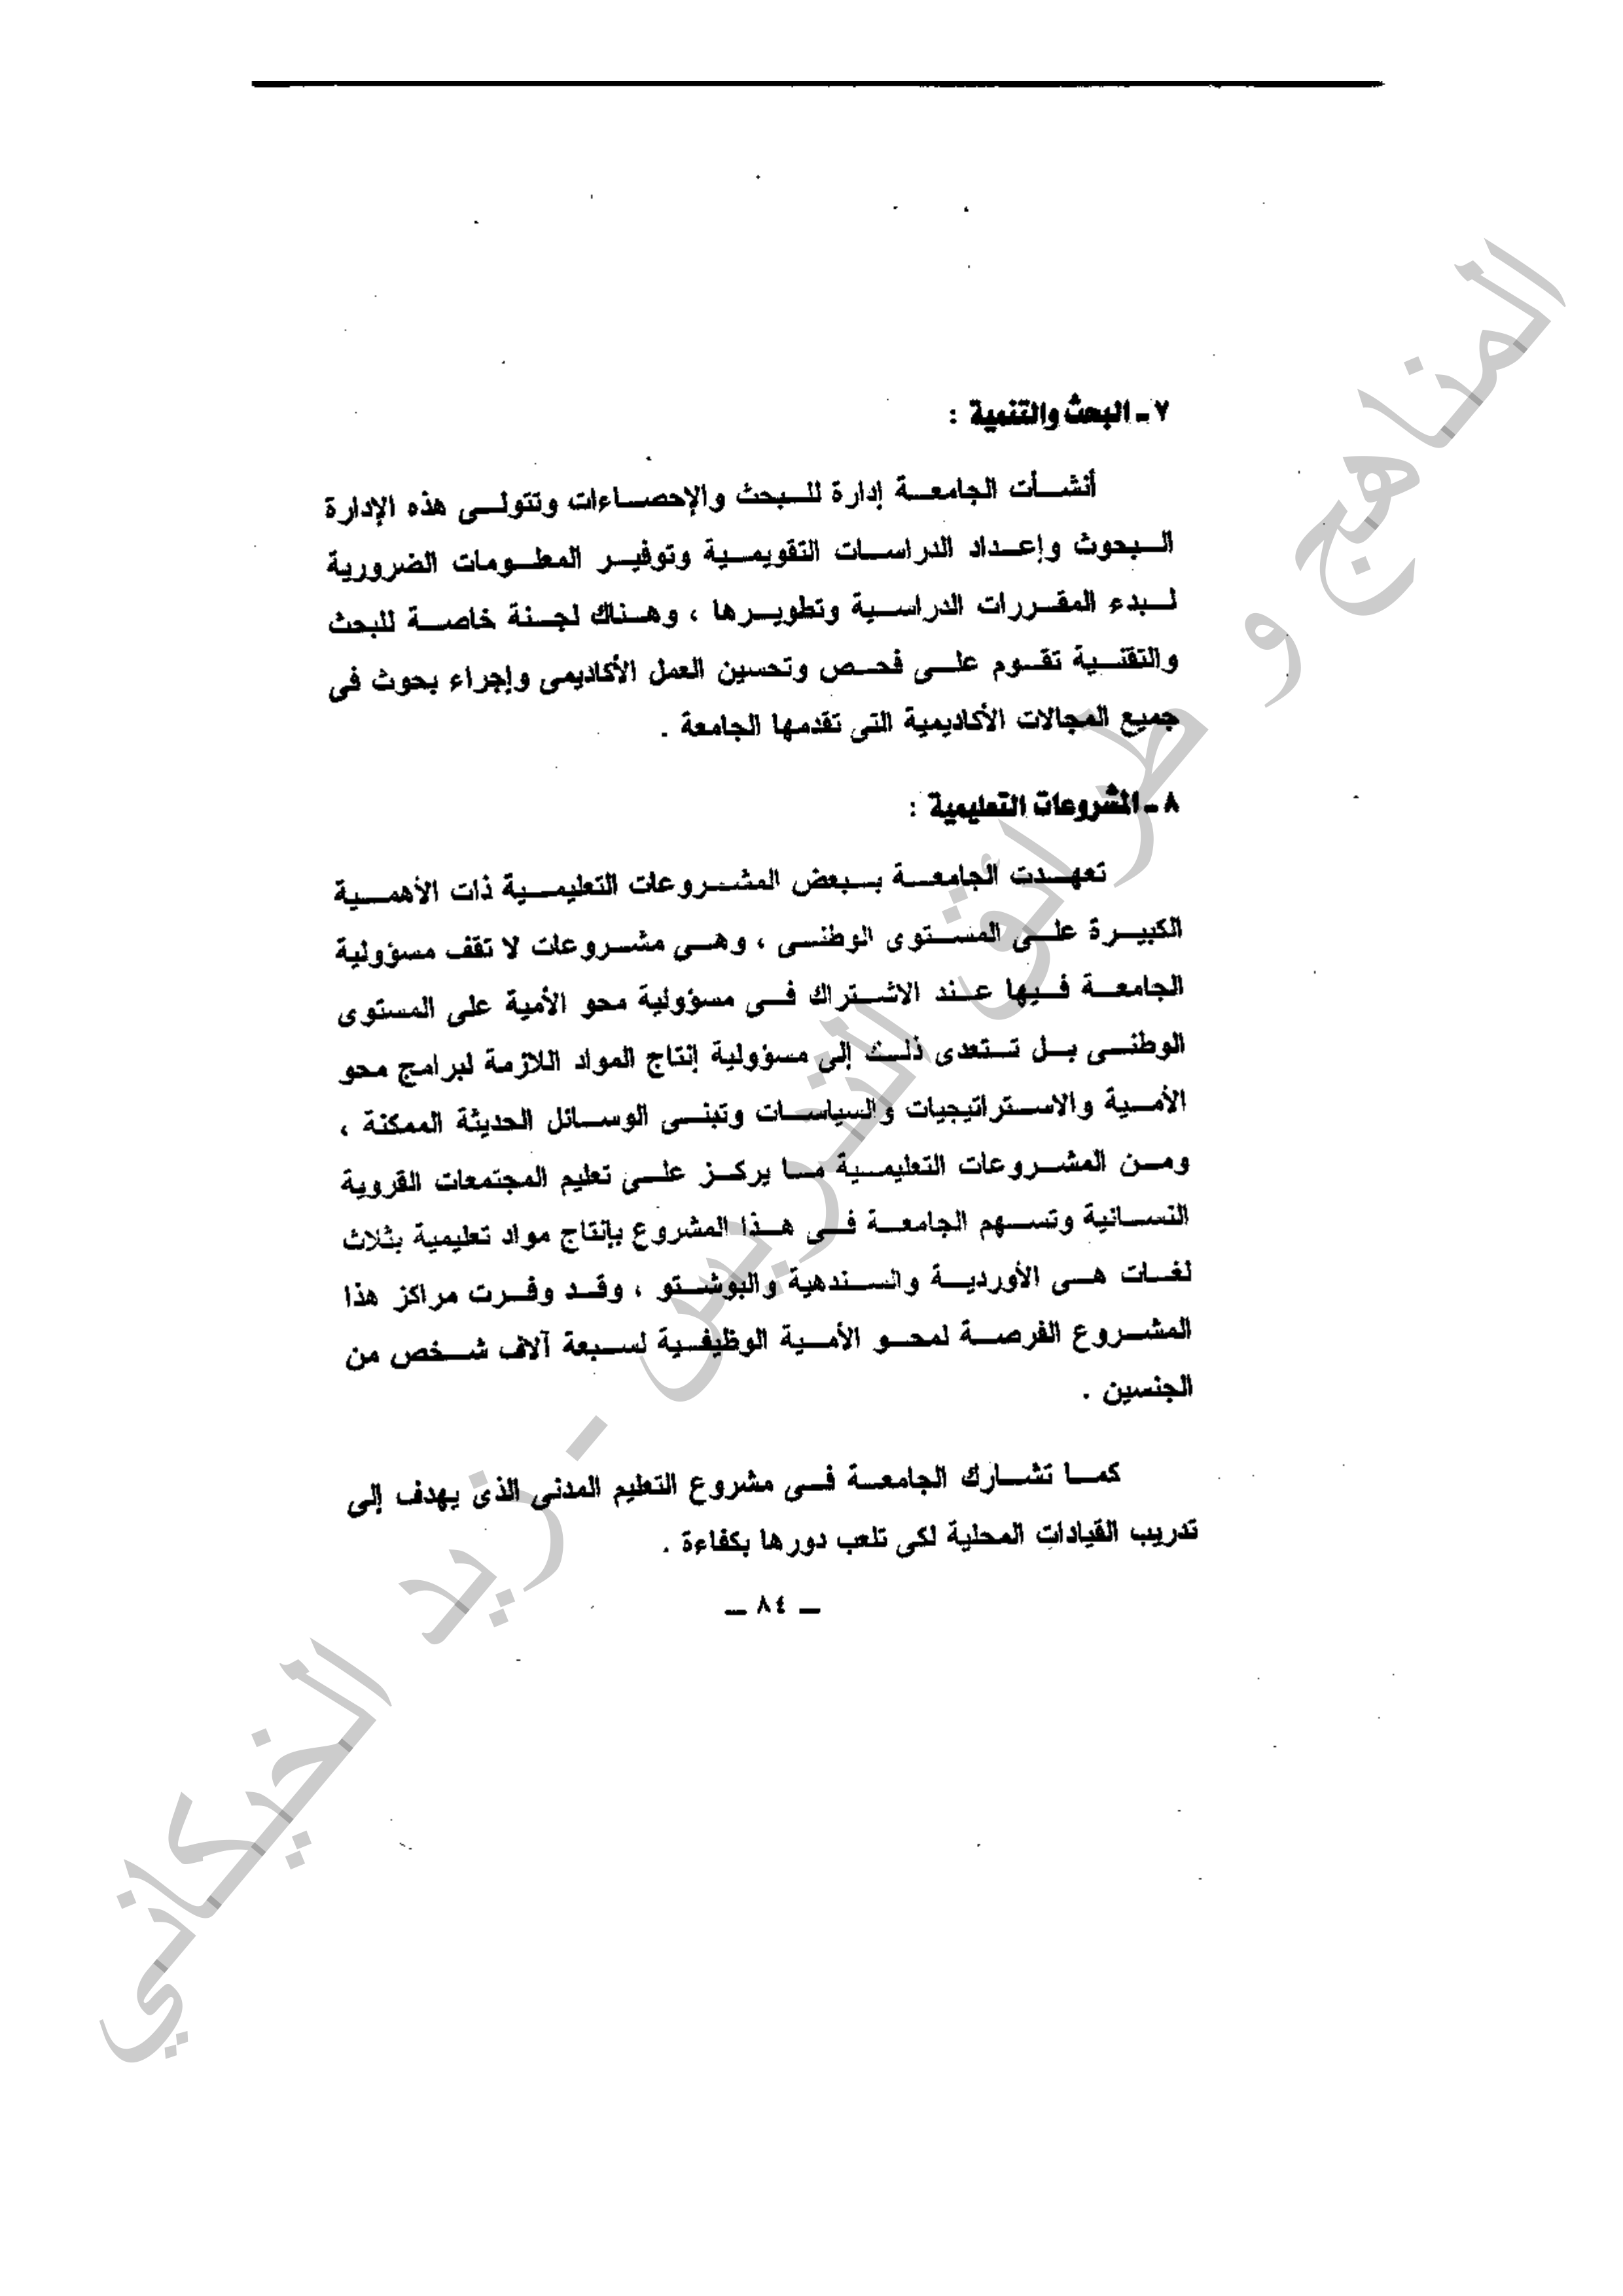 ٧ ـ البحث والتنمية :
أنشأت الجامعة إدارة للبحث والإحصاءات وتتولى هذه الإدارة
البحوث وإعداد الدراسات التقويمية وتوفير المعلومات الضرورية
لبدء المقررات الدراسية وتطويرها ، وهناك لجنة خاصة للبحث
والتقنية تقوم على فحص وتحسين العمل الأكاديمى وإجراء بحوث فى
جميع المجالات الأكاديمية التى تقدمها الجامعة .
٨ ـ المشروعات التعليمية :
تعهدت الجامعة ببعض المشروعات التعليمية ذات الأهمية
الكبيرة على المستوى الوطنى ، وهى مشروعات لا تقف مسؤولية
الجامعة فيها عند الاشتراك فى مسؤولية محو الأمية على المستوى
الوطنى بل تتعدى ذلك إلى مسؤولية إنتاج المواد اللازمة لبرامج محو
الأمية والاستراتيجيات والسياسات وتبنى الوسائل الحديثة الممكنة ،
ومن المشروعات التعليمية ما يركز على تعليم المجتمعات القروية
النسانية وتسهم الجامعة فى هذا المشروع بإنتاج مواد تعليمية بثلاث
لغات هى الأوردية والسندهية والبوشتو ، وقد وفرت مراكز هذا
المشروع الفرصة لمحو الأمية الوظيفية لسبعة آلاف شخص من
الجنسين .
كما تشارك الجامعة فى مشروع التعليم المدنى الذى يهدف إلى
تدريب القيادات المحلية لكى تلعب دورها بكفاءة .
ــ ٨٤ ــ
المناهج و طرائق التدريس - زيد الخيكاني